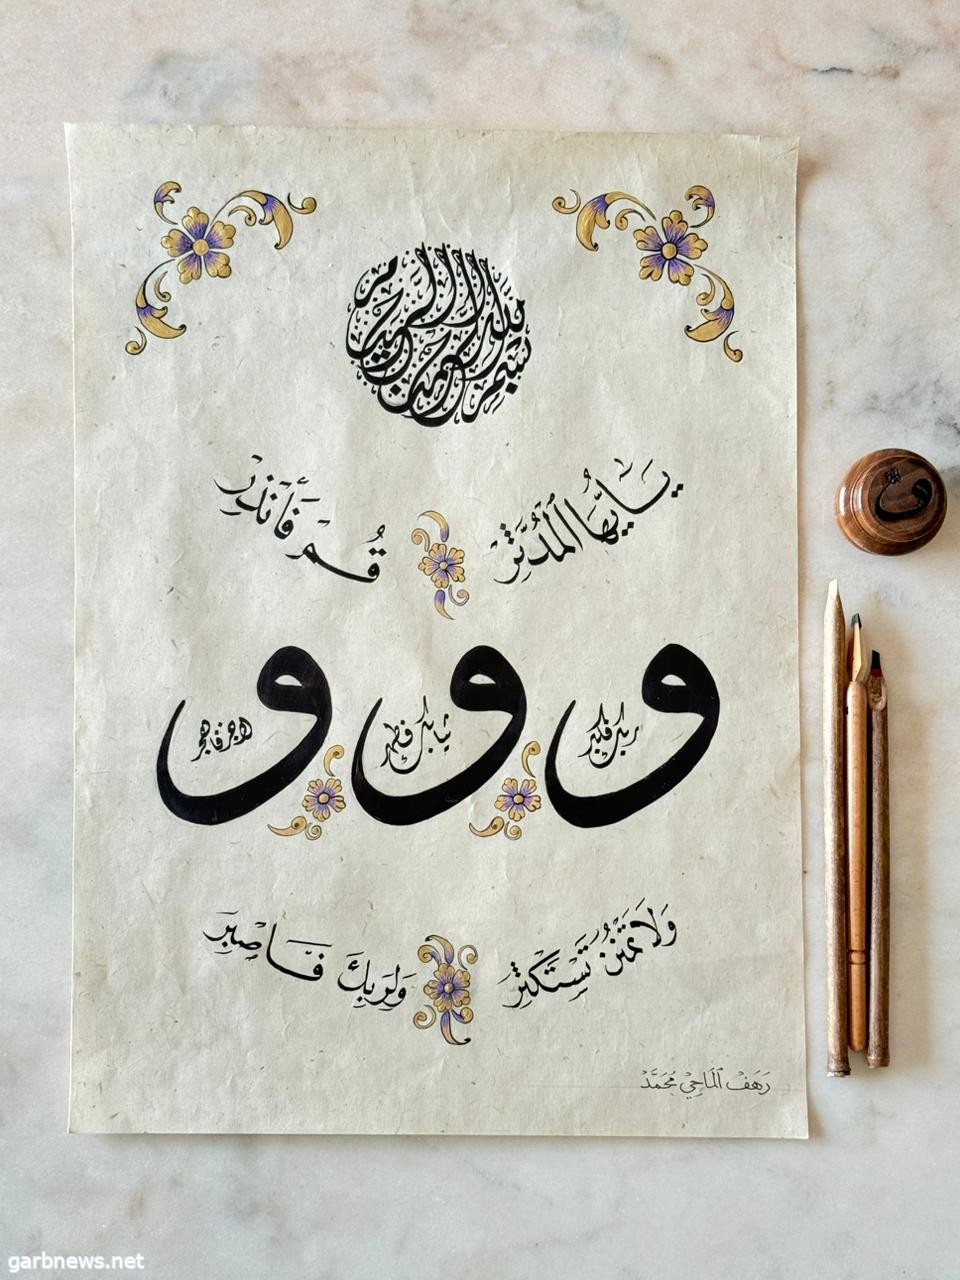 بسم الله الرحمن الرحيم
يَا أَيُّهَا الْمُدَّثِّرُ قُمْ فَأَنذِرْ
و ربك فكبر و ثيابك فطهر و الرجز فاهجر
وَلَا تَمْنُن تَسْتَكْثِرُ وَلِرَبِّكَ فَاصْبِرْ
رَهَف الْمَاحِي مُحَمَّد
garbnews.net